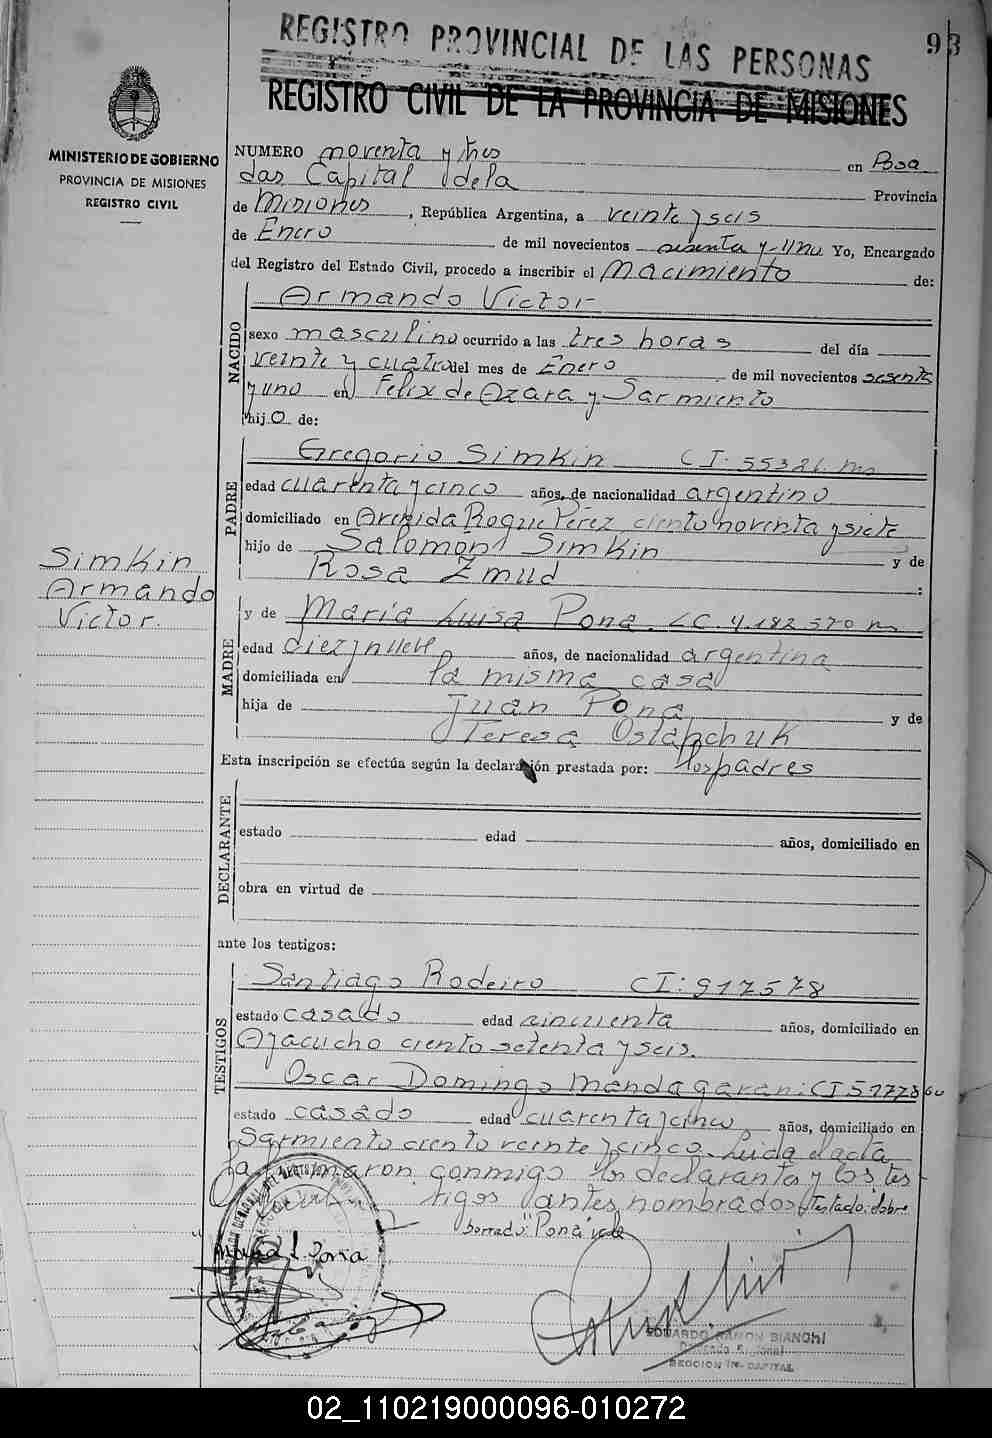 REGISTRO PROVINCIAL DE LAS PERSONAS
93
REGISTRO CIVIL DE LA PROVINCIA DE MISIONES
MINISTERIO DE GOBIERNO
PROVINCIA DE MISIONES
REGISTRO CIVIL
NUMERO noventa y tres en Posa
das Capital dela Provincia
de Misiones, República Argentina, a veinte y seis
de Enero de mil novecientos sesenta y uno Yo, Encargado
del Registro del Estado Civil, procedo a inscribir el Nacimiento de:
NACIDO
Armando Victor
sexo masculino ocurrido a las tres horas del día
veinte y cuatro del mes de Enero de mil novecientos sesenta
y uno en Felix de Azara y Sarmiento
hijo de:
PADRE
Gregorio Simkin CI. 55321. m
edad cuarenta y cinco años, de nacionalidad argentino
domiciliado en Avenida Roque Pérez ciento noventa y siete
hijo de Salomón Simkin y de
Rosa Zmud :
Simkin
Armando
Victor.
MADRE
y de María Luisa Pona. LC. 4.182.570 m
edad diez y nueve años, de nacionalidad argentina
domiciliada en la misma casa
hija de Juan Pona y de
Teresa Ostapchuk
Esta inscripción se efectúa según la declaración prestada por: los padres
DECLARANTE
estado edad años, domiciliado en
obra en virtud de
ante los testigos:
TESTIGOS
Santiago Rodeiro CI: 917578
estado casado edad cincuenta años, domiciliado en
Ayacucho ciento setenta y seis.
Oscar Domingo Mandagaran: CI
estado casado edad cuarenta y cinco años, domiciliado en
Sarmiento ciento veinte y cinco. Leida el acta
la firmaron conmigo los declarantes y los tes
tigos antes nombrados. Testado: sobre
borrado "Pona" vale
Maria L Pona
EDUARDO RAMON BIANCHI
Delegado Regional
SECCION 1ra. CAPITAL
02_110219000096-010272